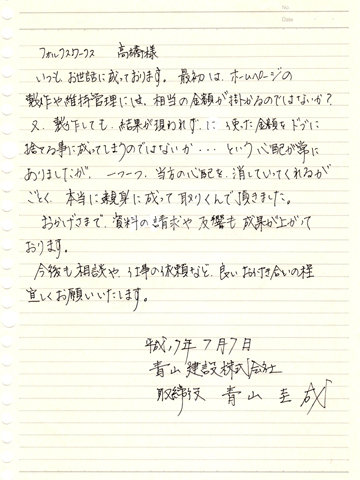 No.
Date
フォルクスワークス 高橋様
いつもお世話に成っております。最初は、ホームページの
製作や維持管理には、相当の金額が掛かるのではないか？
又、製作しても、結果が現われずに使った金額をドブに
捨てる事に成ってしまうのではないか・・・という心配が常に
ありましたが、一つ一つ、当方の心配を、消していってくれるが
ごとく、本当に親身に成って取りくんで頂きました。
おかげさまで、資料の請求や反響も成果が上がって
おります。
今後も相談や仕事の依頼など、良いお付き合いの程
宜しくお願いいたします。
平成17年7月7日
青山建設株式会社
取締役 青山圭成